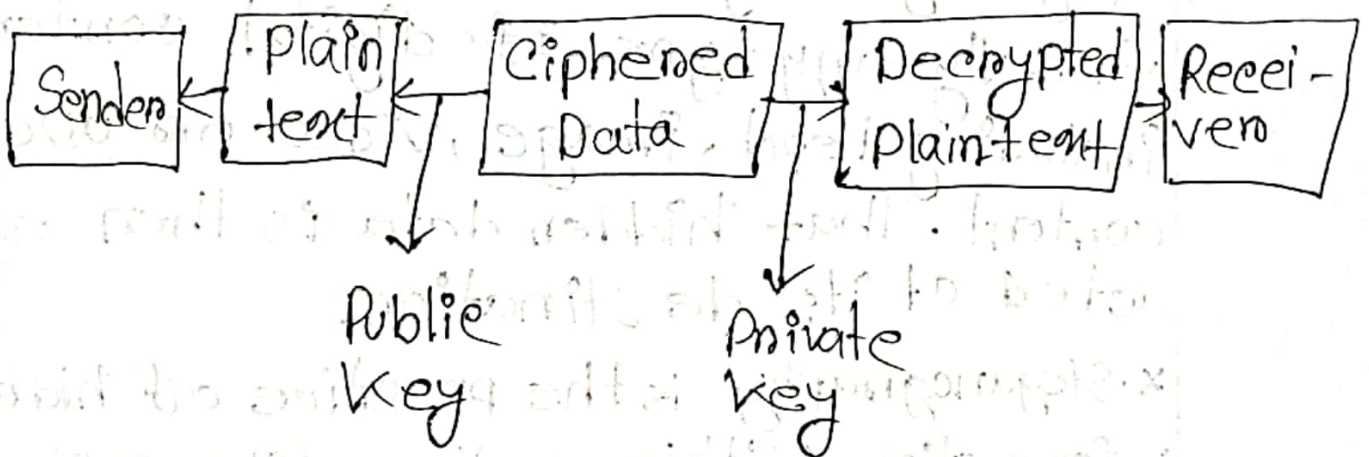 Sender
Plain
text
Ciphered
Data
Decrypted
Plaintext
Recei-
ver
Public
Key
Private
Key